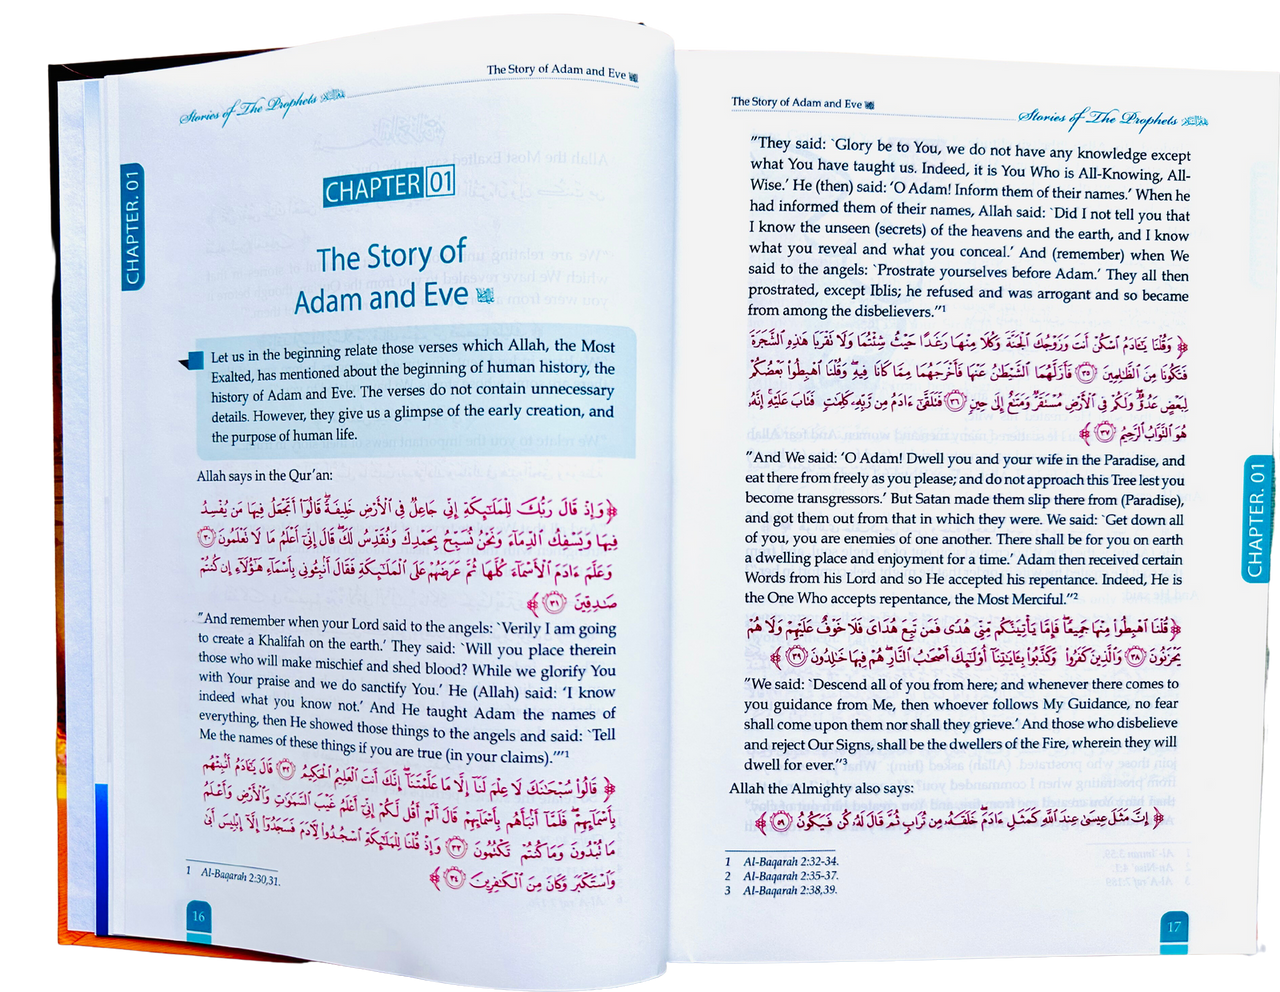 Stories of The Prophets
The Story of Adam and Eve
CHAPTER. 01
CHAPTER 01
The Story of
Adam and Eve
Let us in the beginning relate those verses which Allah, the Most
Exalted, has mentioned about the beginning of human history, the
history of Adam and Eve. The verses do not contain unnecessary
details. However, they give us a glimpse of the early creation, and
the purpose of human life.
Allah says in the Qur'an:
﴿وَإِذْ قَالَ رَبُّكَ لِلْمَلَـٰٓئِكَةِ إِنِّى جَاعِلٌ فِى ٱلْأَرْضِ خَلِيفَةً ۖ قَالُوٓا۟ أَتَجْعَلُ فِيهَا مَن يُفْسِدُ
فِيهَا وَيَسْفِكُ ٱلدِّمَآءَ وَنَحْنُ نُسَبِّحُ بِحَمْدِكَ وَنُقَدِّسُ لَكَ ۖ قَالَ إِنِّىٓ أَعْلَمُ مَا لَا تَعْلَمُونَ ٣٠
وَعَلَّمَ ءَادَمَ ٱلْأَسْمَآءَ كُلَّهَا ثُمَّ عَرَضَهُمْ عَلَى ٱلْمَلَـٰٓئِكَةِ فَقَالَ أَنۢبِـُٔونِى بِأَسْمَآءِ هَـٰٓؤُلَآءِ إِن كُنتُمْ
صَـٰدِقِينَ ٣١﴾
"And remember when your Lord said to the angels: `Verily I am going
to create a Khalīfah on the earth.' They said: `Will you place therein
those who will make mischief and shed blood? While we glorify You
with Your praise and we do sanctify You.' He (Allah) said: 'I know
indeed what you know not.' And He taught Adam the names of
everything, then He showed those things to the angels and said: `Tell
Me the names of these things if you are true (in your claims).'"'¹
﴿قَالُوا۟ سُبْحَـٰنَكَ لَا عِلْمَ لَنَآ إِلَّا مَا عَلَّمْتَنَآ ۖ إِنَّكَ أَنتَ ٱلْعَلِيمُ ٱلْحَكِيمُ ٣٢ قَالَ يَـٰٓـَٔادَمُ أَنۢبِئْهُم
بِأَسْمَآئِهِمْ ۖ فَلَمَّآ أَنۢبَأَهُم بِأَسْمَآئِهِمْ قَالَ أَلَمْ أَقُل لَّكُمْ إِنِّىٓ أَعْلَمُ غَيْبَ ٱلسَّمَـٰوَٰتِ وَٱلْأَرْضِ وَأَعْلَمُ
مَا تُبْدُونَ وَمَا كُنتُمْ تَكْتُمُونَ ٣٣ وَإِذْ قُلْنَا لِلْمَلَـٰٓئِكَةِ ٱسْجُدُوا۟ لِـَٔادَمَ فَسَجَدُوٓا۟ إِلَّآ إِبْلِيسَ أَبَىٰ
وَٱسْتَكْبَرَ وَكَانَ مِنَ ٱلْكَـٰفِرِينَ ٣٤﴾
1 Al-Baqarah 2:30,31.
16
The Story of Adam and Eve
Stories of The Prophets
"They said: `Glory be to You, we do not have any knowledge except
what You have taught us. Indeed, it is You Who is All-Knowing, All-
Wise.' He (then) said: 'O Adam! Inform them of their names.' When he
had informed them of their names, Allah said: `Did I not tell you that
I know the unseen (secrets) of the heavens and the earth, and I know
what you reveal and what you conceal.' And (remember) when We
said to the angels: `Prostrate yourselves before Adam.' They all then
prostrated, except Iblis; he refused and was arrogant and so became
from among the disbelievers."¹
﴿وَقُلْنَا يَـٰٓـَٔادَمُ ٱسْكُنْ أَنتَ وَزَوْجُكَ ٱلْجَنَّةَ وَكُلَا مِنْهَا رَغَدًا حَيْثُ شِئْتُمَا وَلَا تَقْرَبَا هَـٰذِهِ ٱلشَّجَرَةَ
فَتَكُونَا مِنَ ٱلظَّـٰلِمِينَ ٣٥ فَأَزَلَّهُمَا ٱلشَّيْطَـٰنُ عَنْهَا فَأَخْرَجَهُمَا مِمَّا كَانَا فِيهِ ۖ وَقُلْنَا ٱهْبِطُوا۟ بَعْضُكُمْ
لِبَعْضٍ عَدُوٌّ ۖ وَلَكُمْ فِى ٱلْأَرْضِ مُسْتَقَرٌّ وَمَتَـٰعٌ إِلَىٰ حِينٍ ٣٦ فَتَلَقَّىٰٓ ءَادَمُ مِن رَّبِّهِۦ كَلِمَـٰتٍ فَتَابَ عَلَيْهِ ۚ إِنَّهُۥ
هُوَ ٱلتَّوَّابُ ٱلرَّحِيمُ ٣٧﴾
"And We said: 'O Adam! Dwell you and your wife in the Paradise, and
eat there from freely as you please; and do not approach this Tree lest you
become transgressors.' But Satan made them slip there from (Paradise),
and got them out from that in which they were. We said: `Get down all
of you, you are enemies of one another. There shall be for you on earth
a dwelling place and enjoyment for a time.' Adam then received certain
Words from his Lord and so He accepted his repentance. Indeed, He is
the One Who accepts repentance, the Most Merciful."²
﴿قُلْنَا ٱهْبِطُوا۟ مِنْهَا جَمِيعًا ۖ فَإِمَّا يَأْتِيَنَّكُم مِّنِّى هُدًى فَمَن تَبِعَ هُدَاىَ فَلَا خَوْفٌ عَلَيْهِمْ وَلَا هُمْ
يَحْزَنُونَ ٣٨ وَٱلَّذِينَ كَفَرُوا۟ وَكَذَّبُوا۟ بِـَٔايَـٰتِنَآ أُو۟لَـٰٓئِكَ أَصْحَـٰبُ ٱلنَّارِ ۖ هُمْ فِيهَا خَـٰلِدُونَ ٣٩﴾
"We said: `Descend all of you from here; and whenever there comes to
you guidance from Me, then whoever follows My Guidance, no fear
shall come upon them nor shall they grieve.' And those who disbelieve
and reject Our Signs, shall be the dwellers of the Fire, wherein they will
dwell for ever."³
Allah the Almighty also says:
﴿إِنَّ مَثَلَ عِيسَىٰ عِندَ ٱللَّهِ كَمَثَلِ ءَادَمَ ۖ خَلَقَهُۥ مِن تُرَابٍ ثُمَّ قَالَ لَهُۥ كُن فَيَكُونُ ٥٩﴾
1 Al-Baqarah 2:32-34.
2 Al-Baqarah 2:35-37.
3 Al-Baqarah 2:38,39.
CHAPTER. 01
17